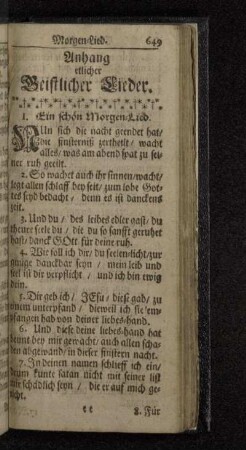 Morgen-Lied. 649
Anhang
etlicher
Geistlicher Lieder.
1. Ein schön Morgen-Lied.
NUn sich die nacht geendet hat/
die finsterniß zertheilt/ wacht
alles/ was am abend spat zu sei-
ner ruh geeilt.
2. So wachet auch ihr sinnen/wacht/
legt allen schlaff bey seit/ zum lobe Got-
tes seyd bedacht/ denn es ist danckens
zeit.
3. Und du/ des leibes edler gast/ du
theure seele du/ die du so sanfft geruhet
hast/ danck GOtt für deine ruh.
4. Wie soll ich dir/ du seelen-licht/ zur
gnüge danckbar seyn/ mein leib und
seel ist dir verpflicht/ und ich bin ewig
dein.
5. Dir geb ich/ JEsu/ diese gab/ zu
einem unterpfand/ dieweil ich sie em-
pfangen hab von deiner liebes-hand.
6. Und diese deine liebes-hand hat
heint bey mir gewacht/ auch allen scha-
den abgewand/ in dieser finstern nacht.
7. In deinen namen schlieff ich ein/
drum kunte satan nicht mit seiner list
mir schädlich seyn/ die er auf mich ge-
richt.
8. Für